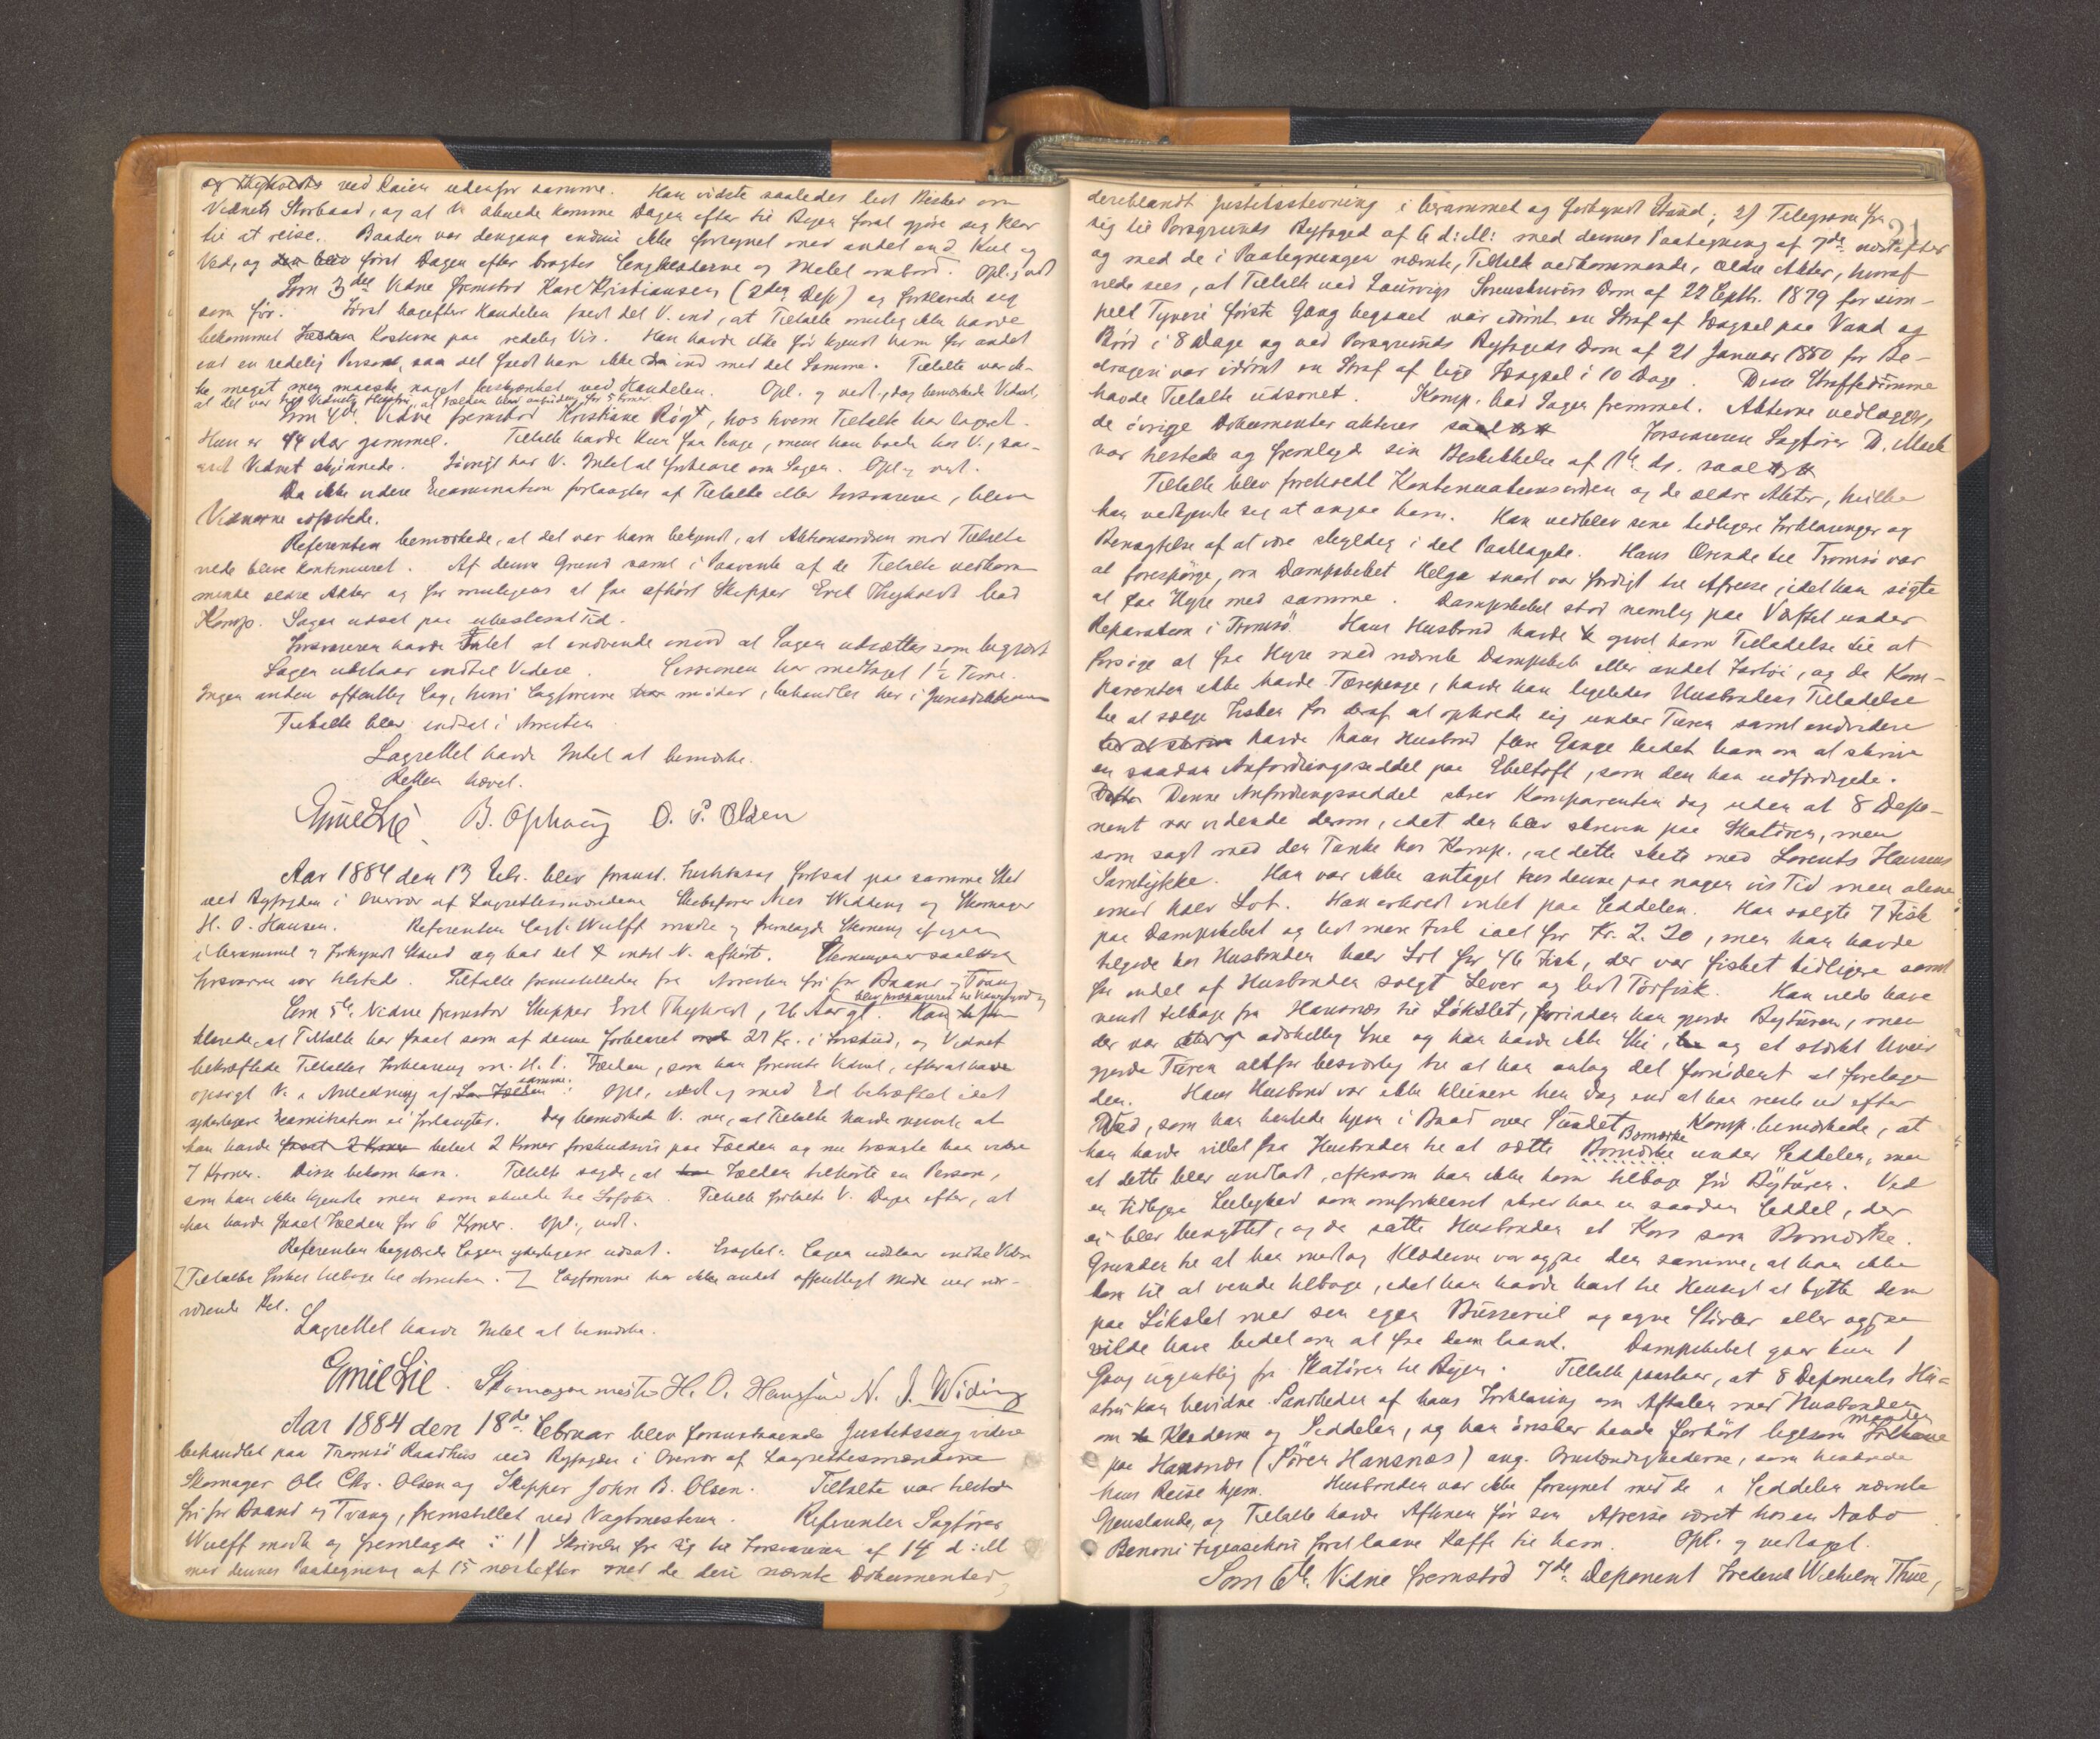 ved Kaien udenfor samme. Han vidste saaledes lidt Besked om
Vidnets Storbaad, og at V. skulde komme Dagen efter til Byen forat gjøre sig klar
til at reise. Baaden var dengang endnu ikke forsynet med andet end Kul og
Ved, og den blev først Dagen efter bragtes Sengklæderne og Melet ombord. Opl., vedt
Som 3die Vidne fremstod Karl Kristiansen (2den Dep) og forklarede sig
som før. Først bagefter Handelen faldt det V. ind, at Tiltalte muligens ikke havde
bekommet Fælden Kosterne paa redelig Vis. Han havde ikke før kjendt ham for andet
end en redelig Person, saa det faldt ham ikke da ind med det Samme. Tiltalte var ik-
ke meget men maaske noget beskjænket ved Handelen. Opl. og vedt., dog bemærkede Vidnet,
at det var Vidnets Hustru, at Fælden blev anbuden for 5 Kroner.
Som 4de Vidne fremstod Kristiane Røgt, hos hvem Tiltalte har logeret.
Hun er 44 Aar gammel. Tiltalte havde kun faa Penge, mens han boede hos V., saa-
vidt Vidnet skjønnede. Iøvrigt har V. Intet at forklare om Sagen. Opl. vedt.
Da ikke videre Examination forlangtes af Tiltalte eller Forsvareren, bleve
Vidnerne afskedte.
Referenten bemærkede, at det var ham bekjendt, at Aktionsordren mod Tiltalte
vilde blive kontinueret. Af denne Grund samt i Paavente af de Tiltalte vedkom-
mende ældre Akter og for muligens at faa afhørt Skipper Erik Thyholdt bad
Komp. Sagen udsat paa ubestemt Tid.
Forsvareren havde Intet at indvende imod at Sagen udsættes som begjært
Sagen udstaar indtil Videre. Sessionen har medtaget 1½ Time.
Ingen anden offentlig Sag, hvori Sagførerne møder, behandles her i Jurisdiktionen
Tiltalte blev indsat i Arresten
Lagrettet havde Intet at bemærke.
Retten hævet.
Emil Lie B. Ophaug O. P. Olsen
Aar 1884 den 13 Febr. blev foranst. Justitssag fortsat paa samme Sted
ved Byfogden i Overvær af Lagrettesmændene Skibsfører Nils Widding og Skomager
H. O. Hansen. Referenten Sagf. Wulff mødte og fremlagde Stevning af igaar
i berammet og forkyndt Stand og bad et indst. V. afhørt.
Forsvareren var tilstede. Tiltalte fremstilledes fra Arresten fri for Baand og Tvang
blev præpareret til Vanefrygt og
Som 5te Vidne fremstod Skipper Erik Thyholdt, 26 Aar gl. Han
klarede, at Tiltalte har faaet som af denne forklaret 27 Kr. i Forskud, og Vidnet
bekræftede Tiltaltes Forklaring m. H. t. Fælden, som han foreviste Vidnet, efterat have
opsøgt V. i Anledning af samme. Opl., vedt og med Ed bekræftet idet
yderligere Examination ei forlangtes. Dog bemærked V. nu, at Tiltalte havde nævnt, at
han havde faaet 2 Kroner betalt 2 Kroner forskudsvis paa Fælden og nu trængte han videre
7 Kroner. Disse bekom ham. Tiltalte sagde, at Fælden tilhørte en Person,
som han ikke kjendte men som skulde til Lofoten. Tiltalte fortalte V. Dagen efter, at
han havde faaet Fælden for 6 Kroner. Opl., vedt.
Referenten begjærede Sagen yderligere udsat. Eragtet: Sagen udstaar indtil Videre
Tiltalte førtes tilbage til Arresten. Sagførerne har ikke andet offentligt Møde ved nær-
værende Ret.
Lagrettet havde Intet at bemærke.
Emil Lie. Skomagermester H. O. Hansen N. J. Widing
Aar 1884 den 18de Februar blev foranstaaende Justitssag videre
behandlet paa Tromsø Raadhus ved Byfogden i Overvær af Lagrettesmændene
Skomager Ole Chr. Olsen og Skipper John B. Olsen. Tiltalte var tilstede
fri for Baand og Tvang, fremstillet ved Vagtmesteren. Referenten Sagfører
Wulff mødte og fremlagde: 1) Skrivelse fra sig til Forsvareren af 14 d: M
med dennes Paategning af 15 næstefter med de deri nævnte Dokumenter,
21
dereblandt Justitsstevning i berammet og forkyndt Stand; 2) Telegram fra
sig til Porsgrunds Byfoged af 6 d: M: med dennes Paategning af 7de næstefter
og med de i Paategningen nævnte, Tiltalte vedkommende, ældre Akter, hvoraf
vilde sees, at Tiltalte ved Laurvigs Sorenskrivers Dom af 22 Septbr. 1879 for sim-
pelt Tyveri første Gang begaaet var idømt en Straf af Fængsel paa Vand og
Brød i 8 Dage og ved Porsgrunds Byfogeds Dom af 21 Januar 1880 for Be-
drageri var idømt en Straf af lige Fængsel i 10 Dage. Disse Straffedomme
havde Tiltalte udsonet. Komp. bad Sagen fremmet. Akterne vedlægges,
de øvrige Dokumenter akteres saal. Forsvareren Sagfører D. Mack
var tilstede og fremlagde sin Beskikkelse af 11te ds. saal.
Tiltalte blev foreholdt Kontinuationsordren og de ældre Akter, hvilke
han vedkjendte sig at angaa ham. Han vedblev sine tidligere Forklaringer og
Benægtelse af at være skyldig i det Paaklagede. Hans Ærinde til Tromsø var
at forespørge, om Dampskibet Helga snart var færdigt til Afreise, idet han søgte
at faa Hyre med samme. Dampskibet stod nemlig paa Værftet under
Reparation i Tromsø. Hans Husbond havde givet ham Tilladelse til at
forsøge at faa Hyre med nævnte Dampskib eller andet Fartøi, og da Kom-
parenten ikke havde Tærepenge, havde han ligeledes Husbondens Tilladelse
til at sælge Fisken for deraf at opholde sig under Turen samt endvidere
til at skrive havde hans Husbond flere Gange bedet ham om at skrive
en saadan Anfordringsseddel paa Ebeltoft, som den han udfærdigede.
Denne Anfordringsseddel skrev Komparenten dog uden at 8 Depo-
nent var vidende derom, idet den blev skreven paa Skatøren, men
som sagt med den Tanke hos Komp., at dette skete med Lorents Hansens
Samtykke. Han var ikke antaget hos denne paa nogen vis Tid men alene
imod halv Lot. Han erholdt intet paa Seddelen. Han solgte 7 Fisk
paa Dampskibet og lidt mere Fisk ialt for Kr. 2.20, men han havde
tilgode hos Husbonden halv Lot for 46 Fisk, der var fisket tidligere samt
for endel af Husbonden solgt Lever og lidt Tørfisk. Han vilde have
vendt tilbage fra Hansnæs til Løkslet, forinden han gjorde Byturen, men
der var adskillig Sne og han havde ikke Ski, og et stærkt Uveir
gjorde Turen altfor besværlig til at han antog det fornødent at foretage
den. Hans Husbond var ikke kleinere hin Dag end at han reiste ud efter
Ved, som han hentede hjem i Baad over Sundet. Komp. bemærkede, at
han havde villet faa Husbonden til at sætte Bomærke Bomærke under Seddelen, men
at dette blev undladt, eftersom han ikke kom tilbage før Byturen. Ved
en tidligere Leilighed som omforklaret skrev han en saadan Seddel, der
ei blev benyttet, og da satte Husbonden et Kors som Bomærke.
Grunden til at han medtog Klæderne var ogsaa den samme, at han ikke
kom til at vende tilbage, idet han havde havt til Hensigt at bytte dem
paa Løkslet med sin egen Busserul og egne Støvler eller ogsaa
vilde have bedet om at faa dem laant. Dampskibet gaar kun 1
Gang ugentlig fra Skatøren til Byen. Tiltalte paastaar, at 8 Deponents Hu-
stru kan bevidne Sandheden af hans Forklaring om Aftalen med Husbonden
om Klæderne og Seddelen, og han ønsker hende forhørt ligesom manden
paa Hansnæs (Søren Hansnæs) ang. Omstændighederne, som hindrede
hans Reise hjem. Husbonden var ikke forsynet med de i Seddelen nævnte
Gjenstande, og Tiltalte havde Aftenen før sin Afreise været hos en Nabo
Benoni for at laane Kaffe til ham. Opl. og vedtaget.
Som 6te Vidne fremstod 7de Deponent Frederik Wilhelm Thue,